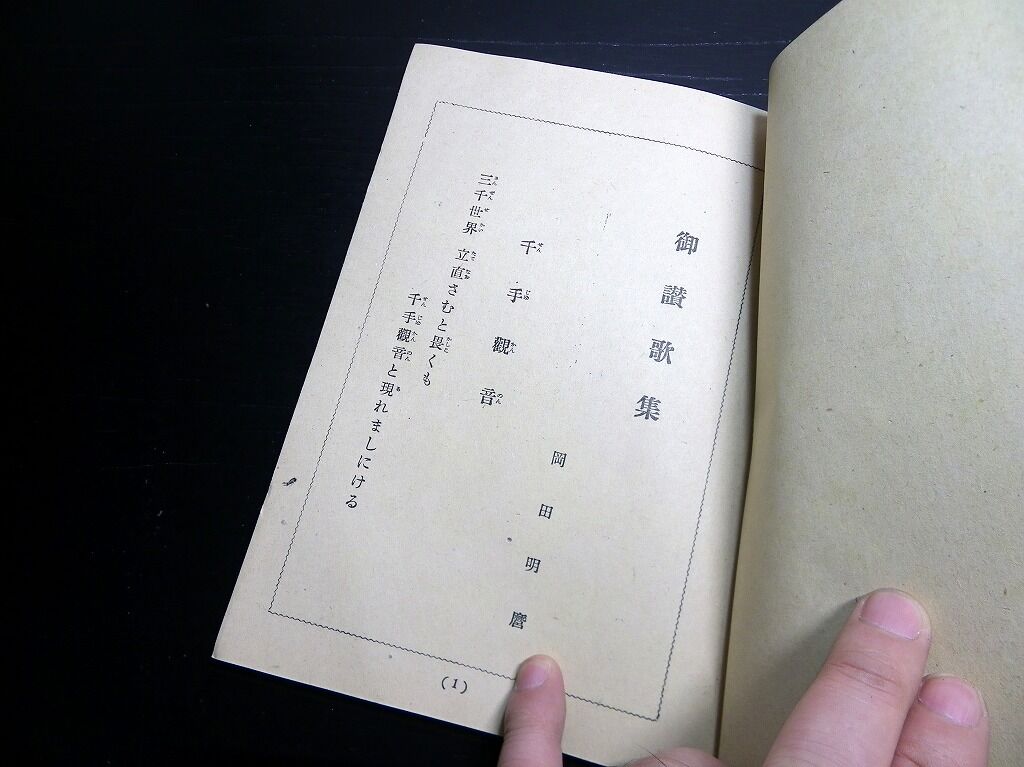 御讃歌集
岡田明麿
千手觀音
三千世界立直さむと畏くも
千手觀音と現れましにける
(1)